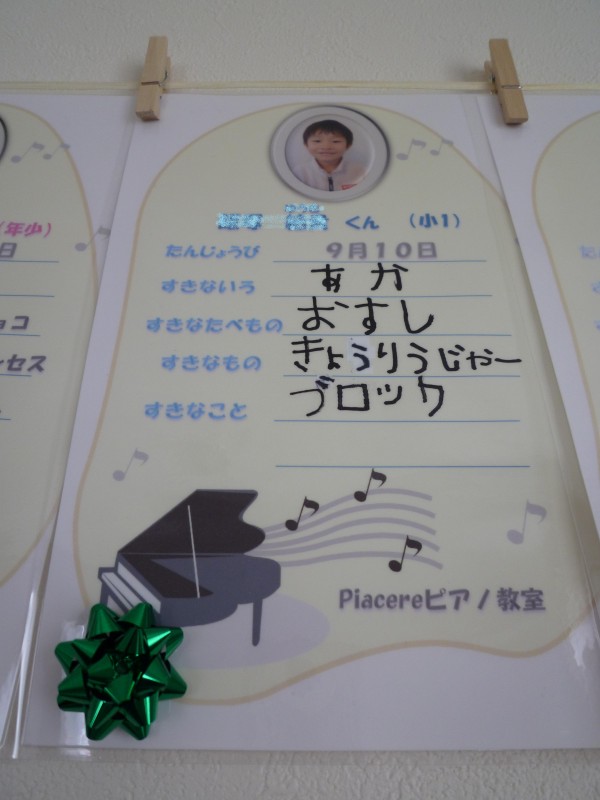 くん (小1)
たんじょうび 9月10日
すきないろ あか
すきなたべもの おすし
すきなもの きょうりうじゃー
すきなこと ブロック
Piacereピアノ教室
(年少)
日
ョコ
セス